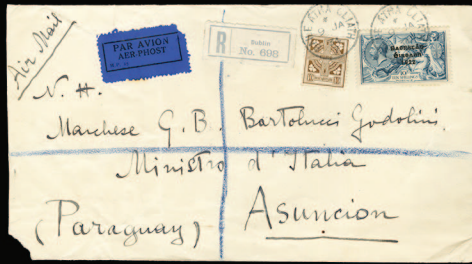 Air Mail
PAR AVION
AER-PHOST
R Dublin
No. 693
N. H.
Marchese G. B. Bartolucci Godolini
Ministro d'Italia
Asuncion
(Paraguay)